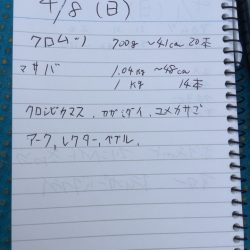 4/8 (日)
クロムツ 700g ~41cm 20本
マサバ 1.04kg ~48cm
1kg 14本
クロシビカマス、カゴカマス、ユメカサゴ
アーク、レクター、